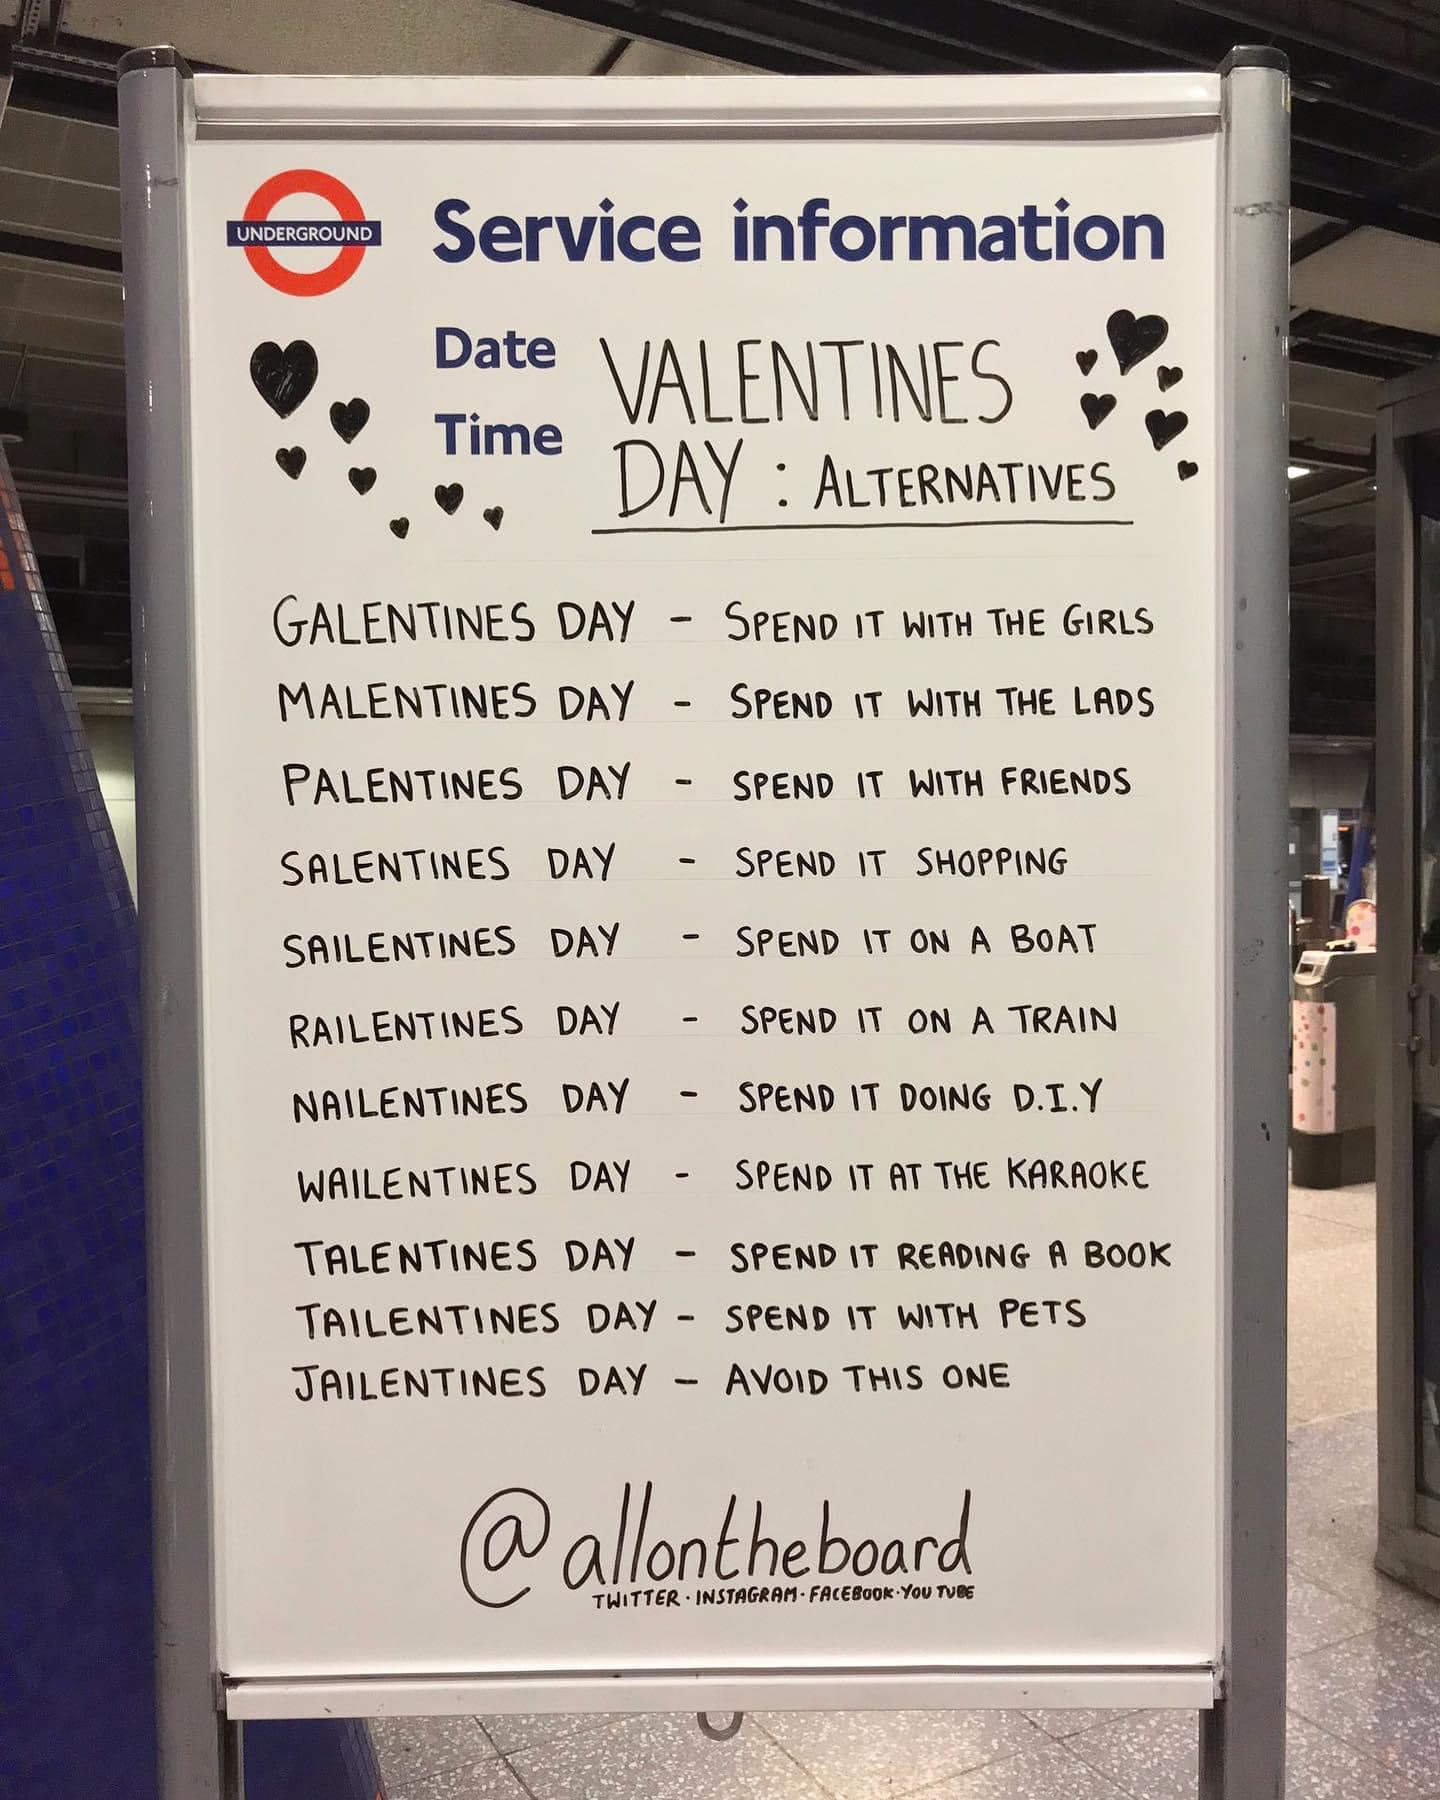 UNDERGROUND
Service information
Date
Time
VALENTINES
DAY : ALTERNATIVES
GALENTINES DAY - SPEND IT WITH THE GIRLS
MALENTINES DAY - SPEND IT WITH THE LADS
PALENTINES DAY - SPEND IT WITH FRIENDS
SALENTINES DAY - SPEND IT SHOPPING
SAILENTINES DAY - SPEND IT ON A BOAT
RAILENTINES DAY - SPEND IT ON A TRAIN
NAILENTINES DAY - SPEND IT DOING D.I.Y
WAILENTINES DAY - SPEND IT AT THE KARAOKE
TALENTINES DAY - SPEND IT READING A BOOK
TAILENTINES DAY - SPEND IT WITH PETS
JAILENTINES DAY - AVOID THIS ONE
@allontheboard
TWITTER · INSTAGRAM · FACEBOOK · YOU TUBE